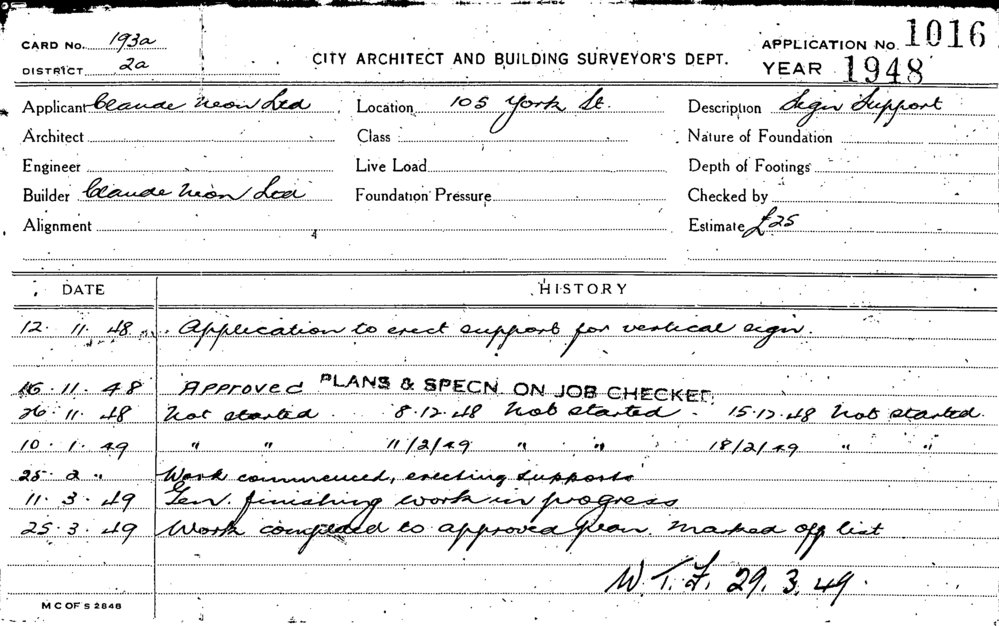 CARD No. 193a
DISTRICT 2a
CITY ARCHITECT AND BUILDING SURVEYOR'S DEPT.
APPLICATION No. 1016
YEAR 1948
Applicant Claude Neon Ltd Location 105 York St. Description Sign Support
Architect Class Nature of Foundation
Engineer Live Load Depth of Footings
Builder Claude Neon Ltd Foundation Pressure Checked by
Alignment Estimate £25
4
DATE HISTORY
12. 11. 48 Application to erect support for vertical sign.
16. 11. 48 APPROVED PLANS & SPECN. ON JOB CHECKED.
26. 11. 48 Not started. 8.12.48 Not started. 15.12.48 Not started.
10. 1. 49 " " 11/2/49 " " 18/2/49 " "
25. 2 " Work commenced, erecting supports
11. 3. 49 Gen. finishing work in progress
25. 3. 49 Work completed to approved plan. Marked off list
W. T. F. 29. 3. 49.
M C OF S 2848